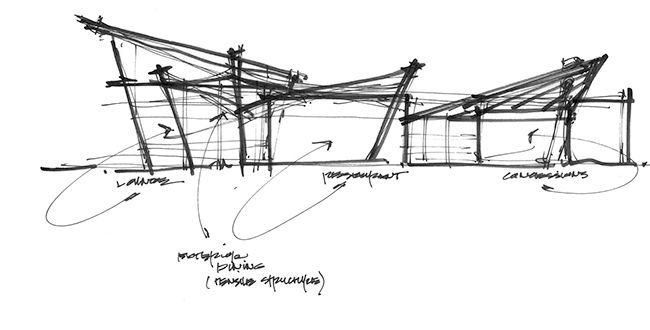 LOUNGE
RESTAURANT
CONCESSIONS
EXTERIOR
DINING
(TENSILE STRUCTURE)